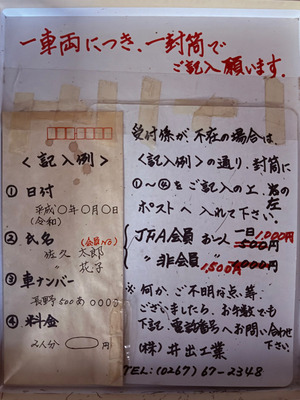 一車両につき、一封筒で
ご記入願います。
<記入例>
① 日付
平成○年○月○日
(令和)
② 氏名 (会員No)
佐久 太郎
〃 花子
③ 車ナンバー
長野500あ○○○○
④ 料金
2人分 円
受付係が、不在の場合は、
<記入例>の通り、封筒に
①〜④をご記入の上、
左
ポストへ入れて下さい。
JFA会員 お一人 一日 1,000円
500円
〃 非会員 〃 1,500円 1,000円
※ 何か、ご不明な点等、
ございましたら、お手数でも
下記、電話番号へお問い合わせ
下さい。
(株) 井出工業
TEL:(0267)67-2348